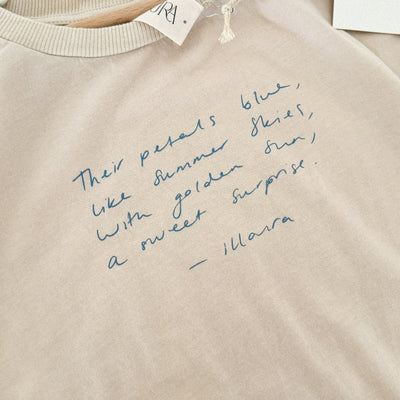 Their petals blue,
like summer skies,
with golden sun,
a sweet surprise.
– illarra